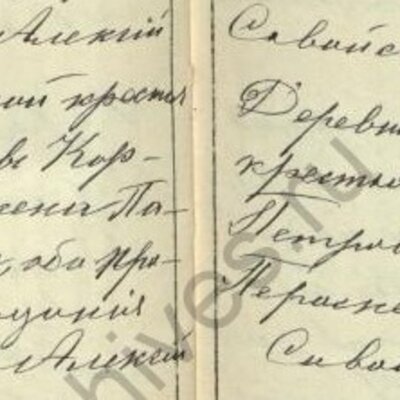 Алексій
ной крестья
въ Кор-
жена Па-
, оба пра-
данія
Алексій
Савойс
Деревн
крестья
Петров
Перасне
Савой
hives.ru